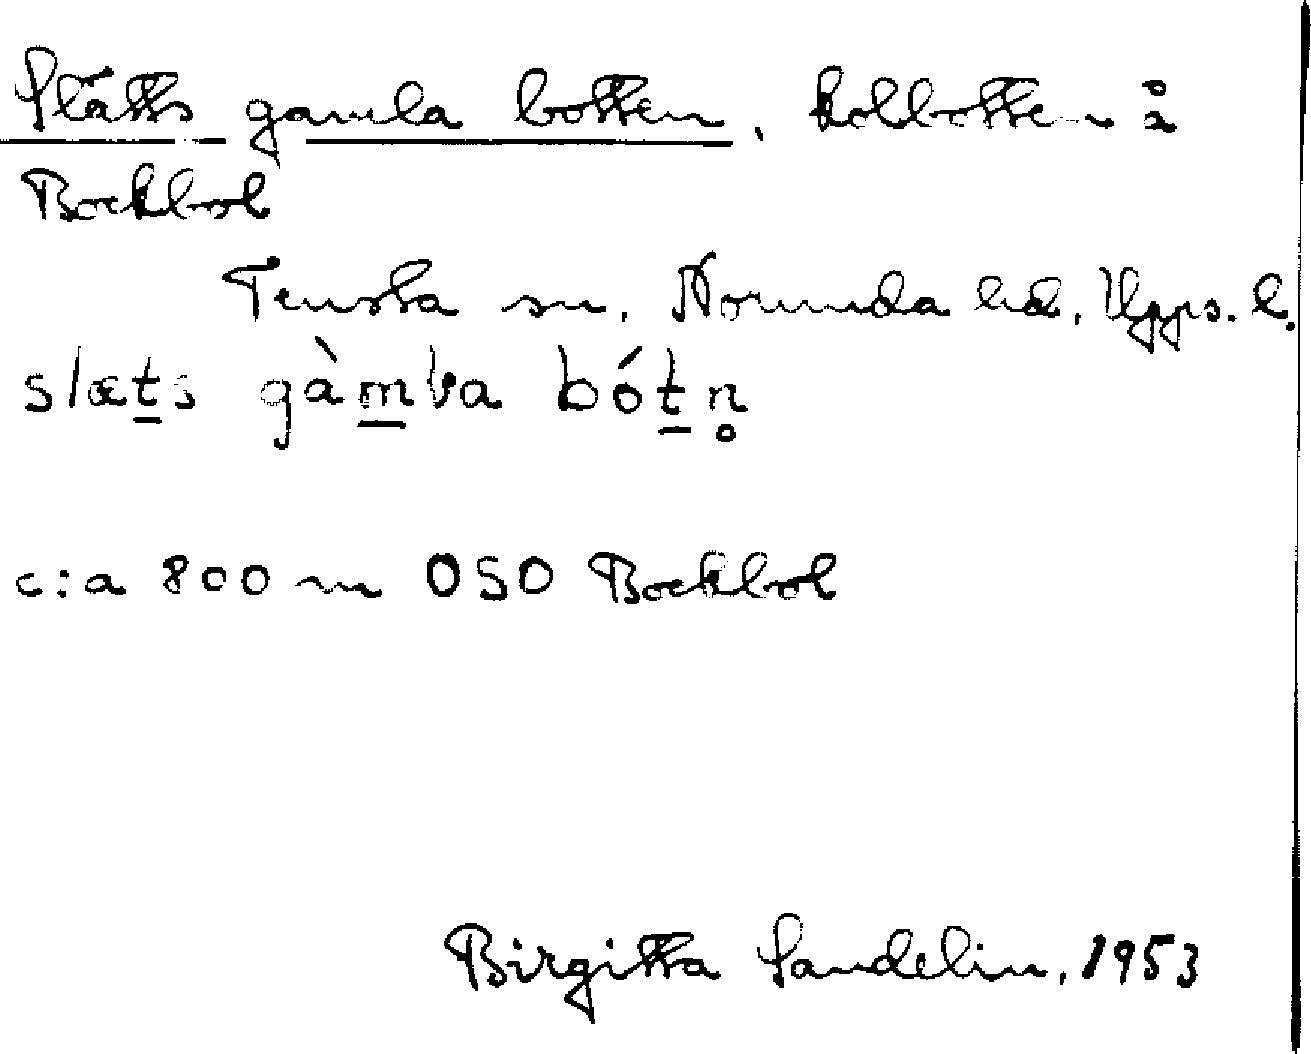 Slätts gamla botten, kolbotten å
Bockbol
Tensta sn, Norunda hd, Upps. l.
slæt̲s gàm̲ła bót̲n̥
c:a 800 m OSO Bockbol
Birgitta Sandelin, 1953